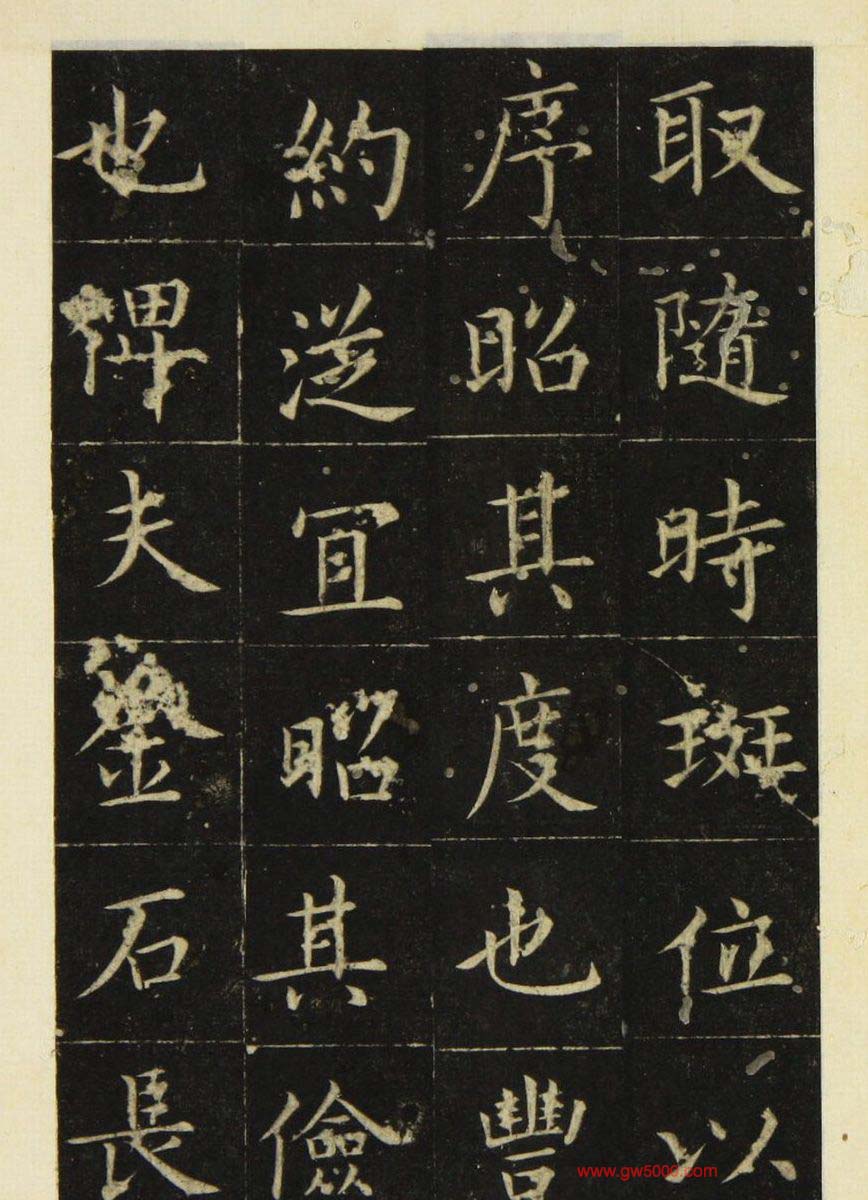 取隨時班位以
序昭其度也豐
約從宜昭其儉
也俾夫鐫石長
www.gw5000.com